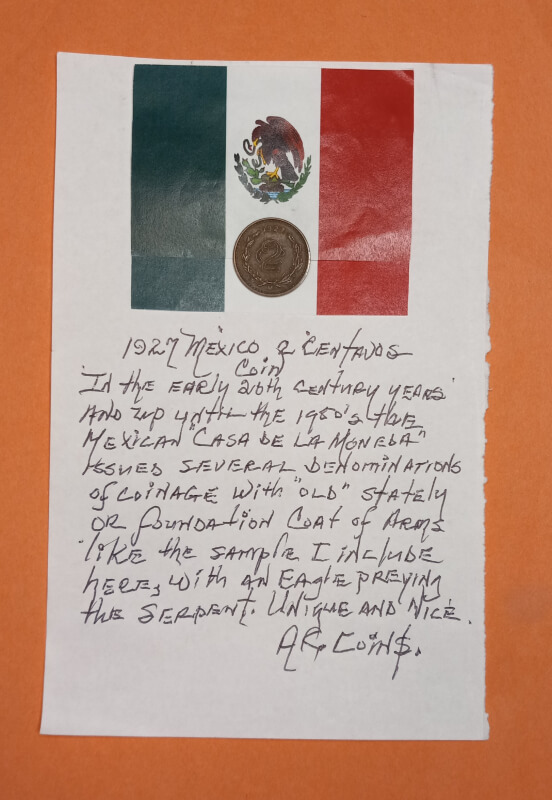 1927
2
1927 MEXICO 2 CENTAVOS
COIN
IN the EARLY 20th CENTURY YEARS
AND UP UNTIL the 1950's the
MEXICAN "CASA DE LA MONEDA"
ISSUED SEVERAL DENOMINATIONS
of COINAGE With "OLD" Stately
OR foundation Coat of Arms
like the sample I include
here, with an EAGLE PREYING
the SERPENT. UNIQUE AND NICE.
AR COIN$.